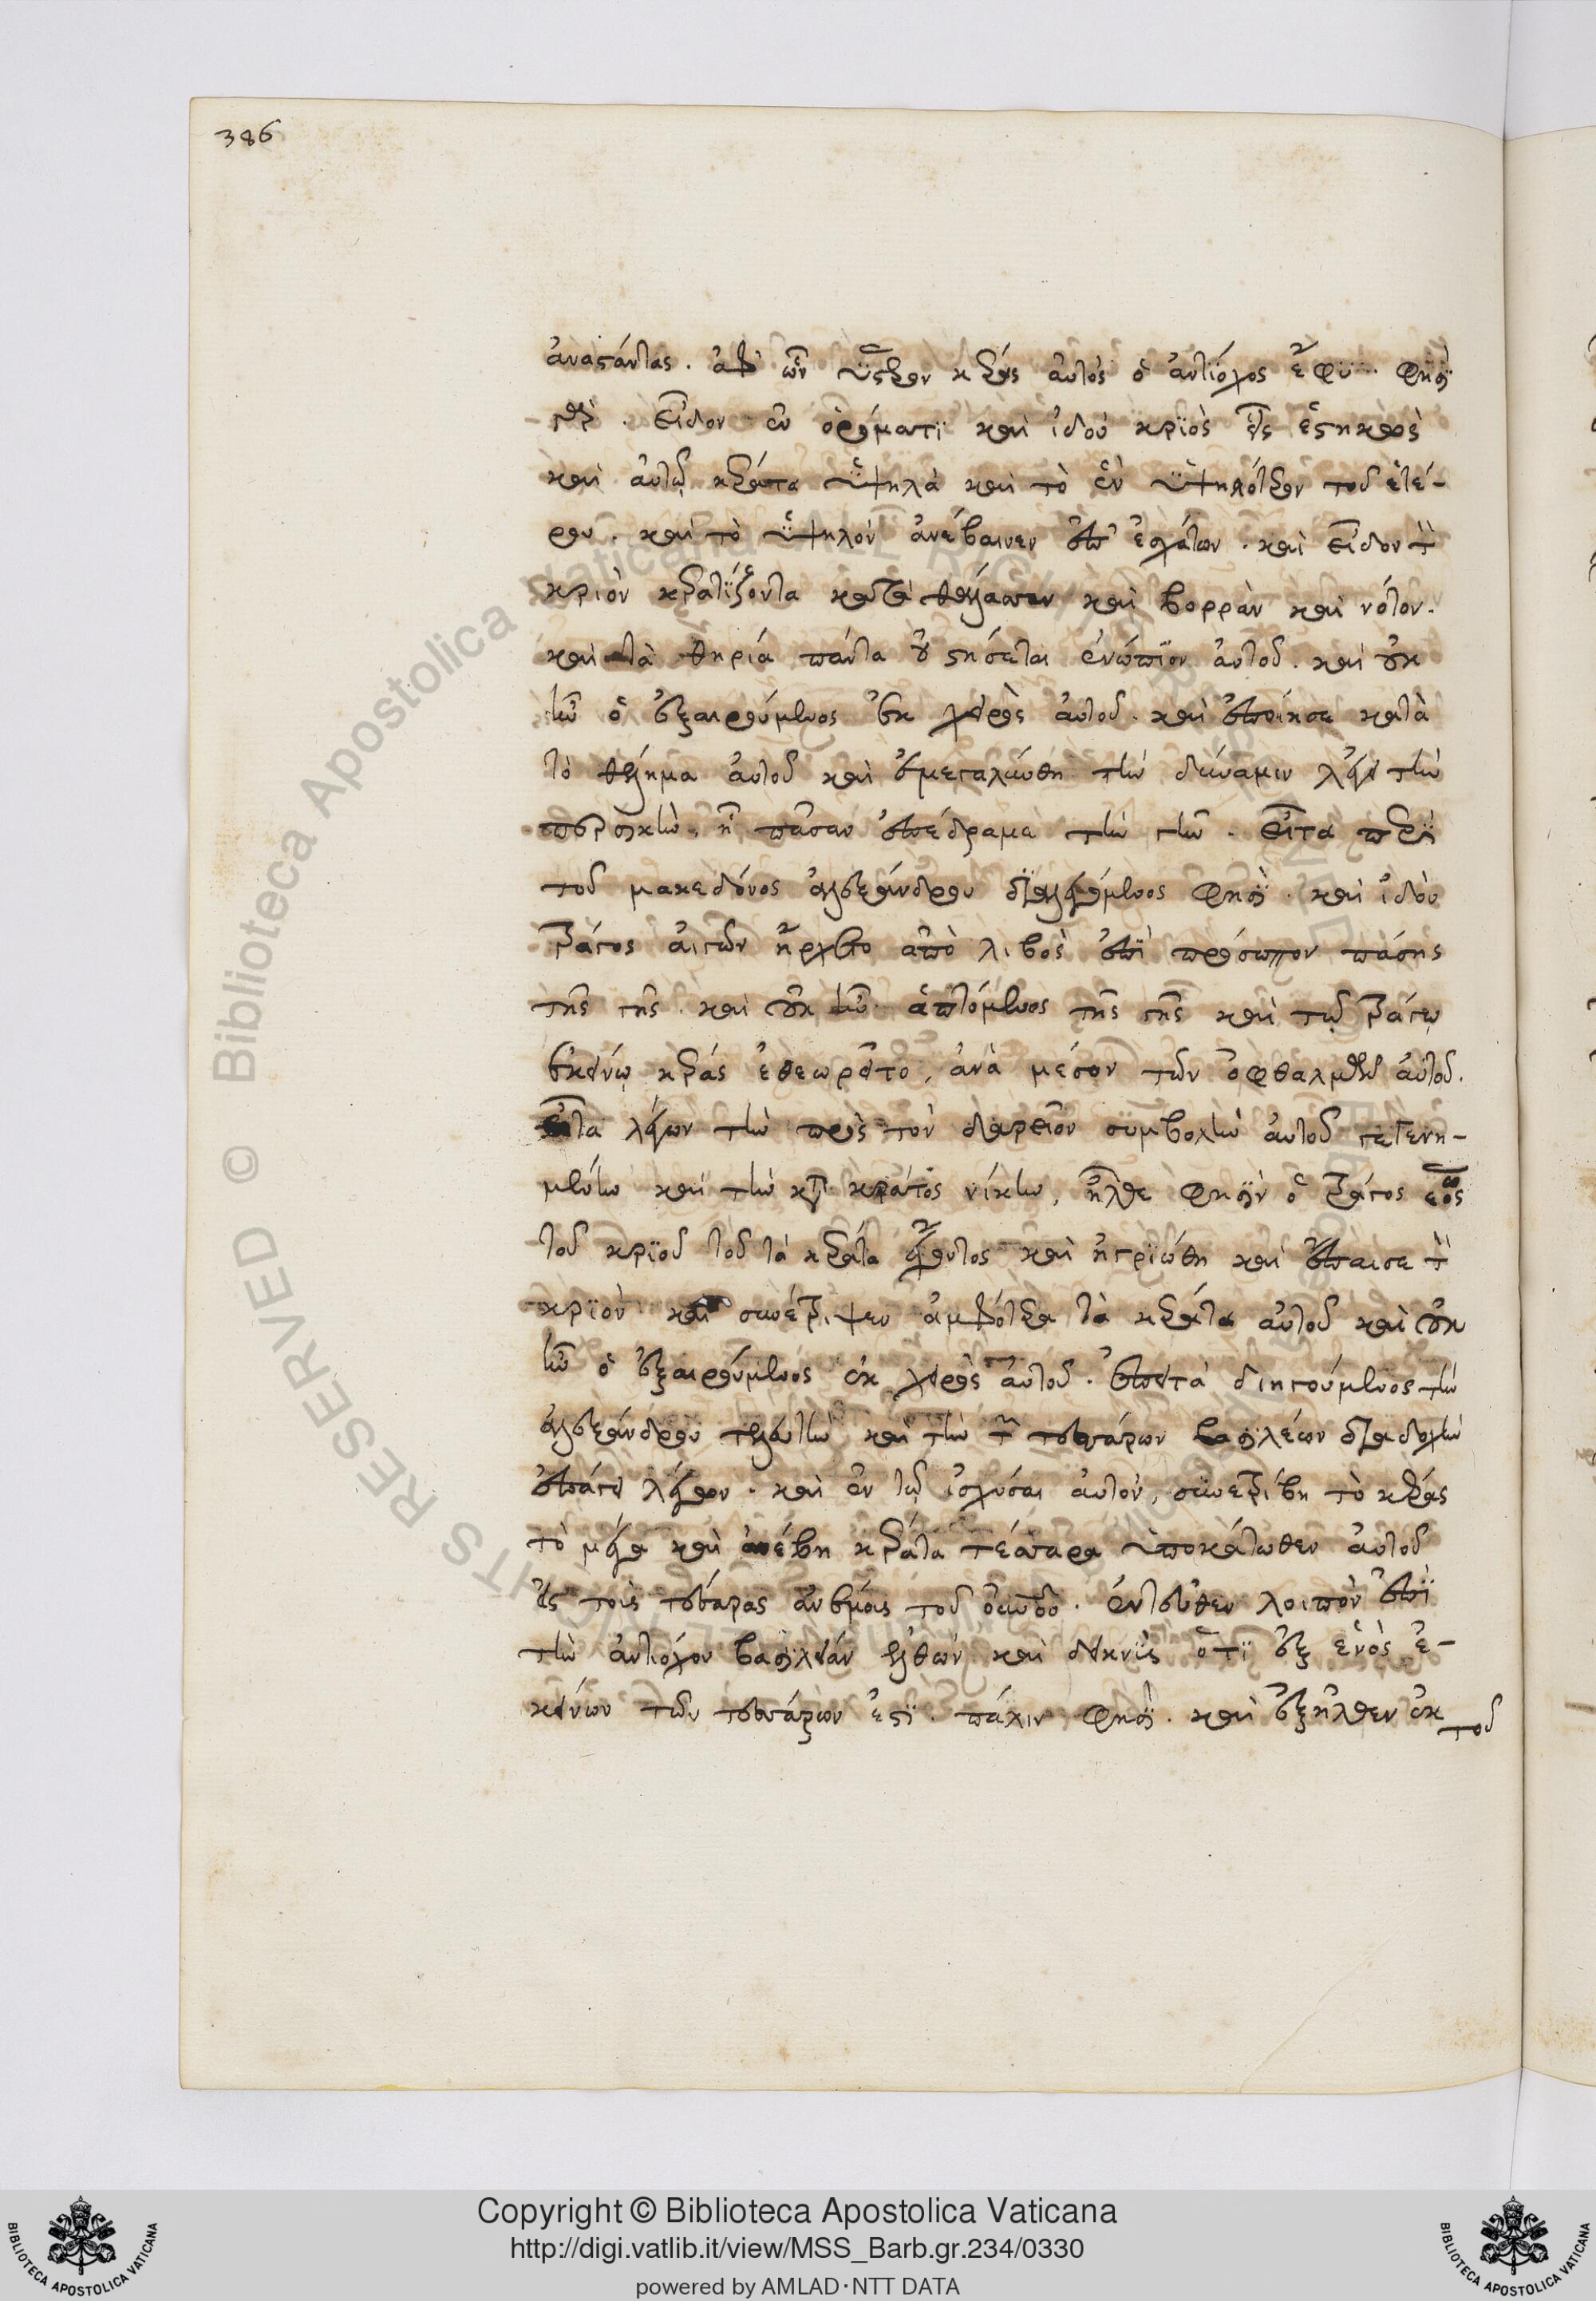 386
ἀναστάντας. ἀφ' ὧν ὕστερον κέρας αὐτὸς ὁ ἀντίοχος ἔφυ. φησὶ
γὰρ. εἶδον ἐν ὁράματι καὶ ἰδοὺ κριὸς εἷς ἑστηκὼς
καὶ αὐτῷ κέρατα ὑψηλὰ καὶ τὸ ἓν ὑψηλότερον τοῦ ἑτέ-
ρου. καὶ τὸ ὑψηλὸν ἀνέβαινεν ἐπ' ἐσχάτων. καὶ εἶδον τὸν
κριὸν κερατίζοντα κατὰ θάλασσαν καὶ βορρὰν καὶ νότον.
καὶ τὰ θηρία πάντα οὐ στήσεται ἐνώπιον αὐτοῦ. καὶ οὐκ
ἦν ὁ ἐξαιρούμενος ἐκ χειρὸς αὐτοῦ. καὶ ἐποίησε κατὰ
τὸ θέλημα αὐτοῦ καὶ ἐμεγαλύνθη τὴν δύναμιν λέγει τὴν
περσικὴν, ἣ πᾶσαν ἐπέδραμε τὴν γῆν. εἶτα περὶ
τοῦ μακεδόνος ἀλεξάνδρου διαλεγόμενος φησὶ. καὶ ἰδοὺ
τράγος αἰγῶν ἤρχετο ἀπὸ λιβὸς ἐπὶ πρόσωπον πάσης
τῆς γῆς. καὶ οὐκ ἦν ἁπτόμενος τῆς γῆς καὶ τῷ τράγῳ
ἐκείνῳ κέρας ἐθεωρεῖτο, ἀνὰ μέσον τῶν ὀφθαλμῶν αὐτοῦ.
εἶτα λέγων τὴν πρὸς τὸν δαρεῖον συμβολὴν αὐτοῦ γεγενη-
μένην καὶ τὴν κατὰ κράτος νίκην, ἦλθε φησὶν ὁ τράγος ἕως
τοῦ κριοῦ τοῦ τὰ κέρατα ἔχοντος καὶ ἠγριώθη καὶ ἔπαισε τὸν
κριὸν καὶ συνέτριψεν ἀμφότερα τὰ κέρατα αὐτοῦ καὶ οὐκ
ἦν ὁ ἐξαιρούμενος ἐκ χειρὸς αὐτοῦ. ἔπειτα διηγούμενος τὴν
ἀλεξάνδρου τελευτὴν καὶ τὴν τῶν τεσσάρων βασιλέων διαδοχὴν
ἐπάγει λέγων. καὶ ἐν τῷ ἰσχύσαι αὐτὸν, συνετρίβη τὸ κέρας
τὸ μέγα καὶ ἀνέβη κέρατα τέσσαρα ὑποκάτωθεν αὐτοῦ
εἰς τοὺς τέσσαρας ἀνέμους τοῦ οὐρανοῦ. ἐντεῦθεν λοιπὸν ἐπὶ
τὴν ἀντιόχου βασιλείαν ἐλθὼν καὶ δεικνὺς ὅτι ἐξ ἑνὸς ἐ-
κείνων τῶν τεσσάρων ἐστὶ. πάλιν φησὶ. καὶ ἐξῆλθεν ἐκ
τοῦ
Copyright © Biblioteca Apostolica Vaticana
http://digi.vatlib.it/view/MSS_Barb.gr.234/0330
powered by AMLAD·NTT DATA